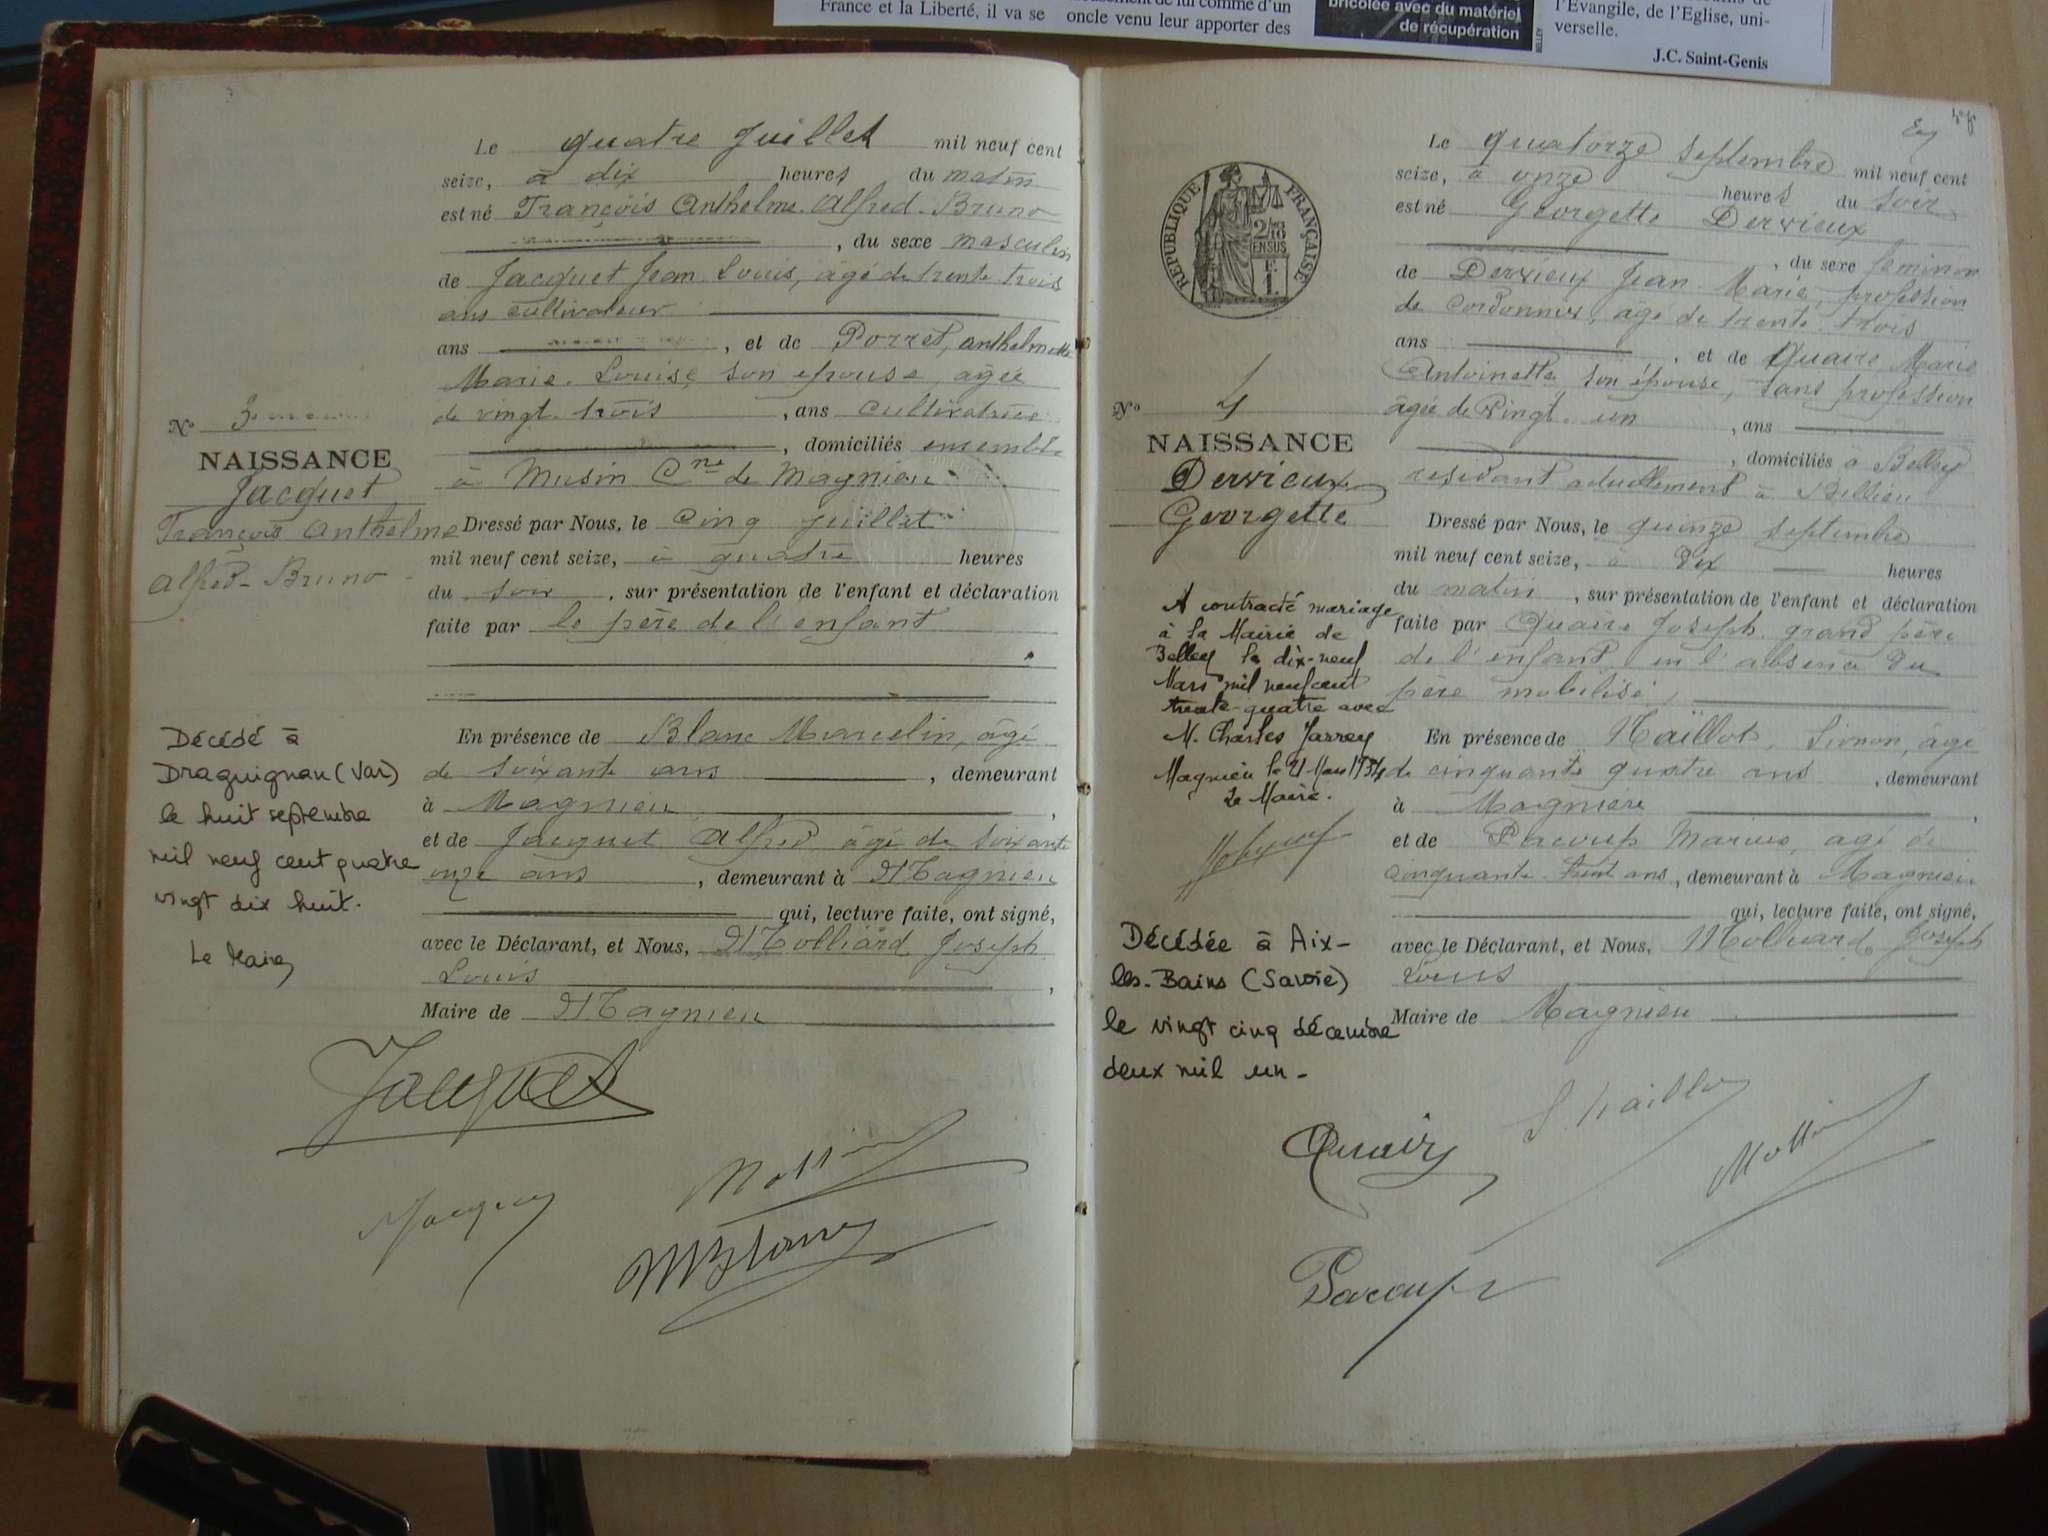 France et la Liberté, il va se
lui comme d'un
oncle venu leur apporter des
bricolée avec du matériel
de récupération
l'Evangile, de l'Eglise, uni-
verselle.
J.C. Saint-Genis
Le quatre Juillet mil neuf cent
seize, à dix heures du matin
est né François Anthelme Alfred Bruno
, du sexe masculin
de Jacquet Jean Louis, âgé de trente trois
ans cultivateur
ans , et de Porret, anthelmette
Marie Louise son épouse, agée
de vingt trois , ans cultivatrice
, domiciliés ensemble
à Musin Cne de Magnieu
Dressé par Nous, le cinq juillet
mil neuf cent seize, à quatre heures
du soir , sur présentation de l'enfant et déclaration
faite par le père de l'enfant
En présence de Blanc Marcelin, âgé
de soixante ans , demeurant
à Magnieu ,
et de Jacquet Alfred âgé de soixante
onze ans , demeurant à Magnieu
qui, lecture faite, ont signé,
avec le Déclarant, et Nous, Molliard Joseph
Louis ,
Maire de Magnieu
N° 3
NAISSANCE
Jacquet
François Anthelme
Alfred Bruno
Décédé à
Draguignan (Var)
le huit septembre
mil neuf cent quatre
vingt dix huit.
Le Maire
Jacquet
Jacquet
M Blanc
RÉPUBLIQUE FRANÇAISE
Le quatorze septembre mil neuf cent
seize, à onze heures du soir
est né Georgette Dervieux
, du sexe feminin
de Dervieux Jean Marie, profession
de cordonnier, agé de trente trois
ans , et de Quaire Marie
Antoinette son épouse, sans profession
âgée de Vingt un , ans
, domiciliés à Belley
residant actuellement à Billieu
Dressé par Nous, le quinze septembre
mil neuf cent seize, à Dix heures
du matin , sur présentation de l'enfant et déclaration
faite par Quaire Joseph grand père
de l'enfant en l'absence du
père mobilisé,
En présence de Maillot, Simon, âgé
de cinquante quatre ans , demeurant
à Magnieu ,
et de Pacoup Marius, agé de
cinquante huit ans, demeurant à Magnieu
qui, lecture faite, ont signé,
avec le Déclarant, et Nous, Molliard Joseph
Louis
Maire de Magnieu
N° 4
NAISSANCE
Dervieux
Georgette
A contracté mariage
à la Mairie de
Belley le dix-neuf
Mars mil neuf cent
trente-quatre avec
M. Charles Jarrey
Magnieu le 21 Mars 1934
Le Maire.
Décédée à Aix-
les-Bains (Savoie)
le vingt cinq décembre
deux mil un-
Quaire
S. Maillot
Pacoup